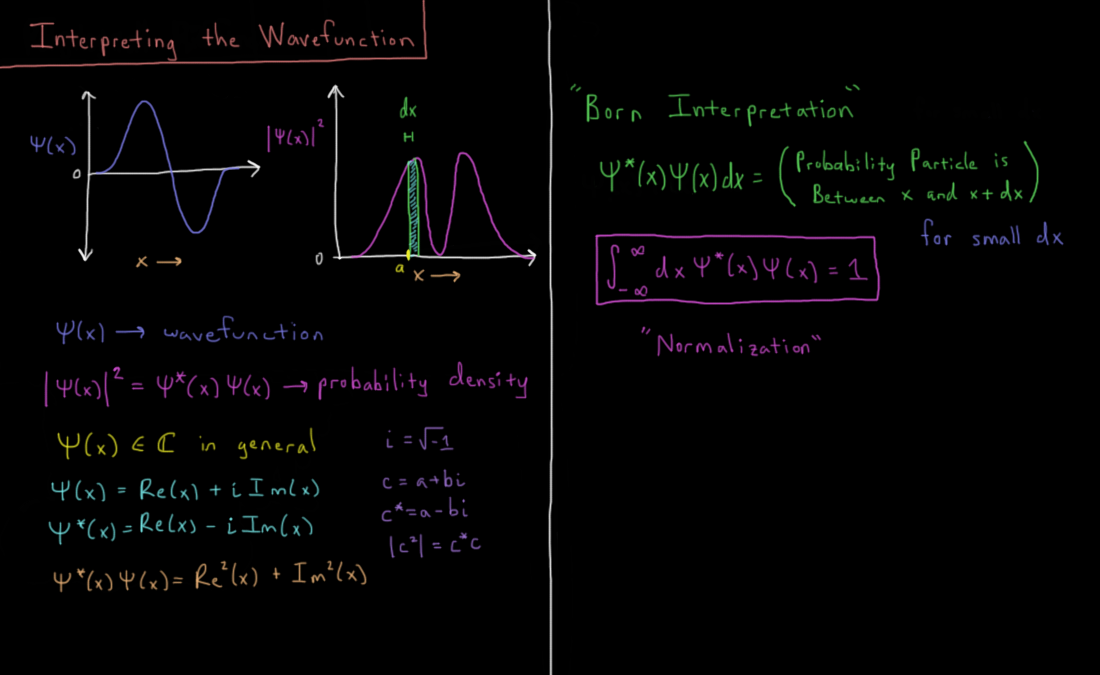 Interpreting the Wavefunction
Ψ(x)
0
x →
|Ψ(x)|²
dx
0
a
x →
Ψ(x) → wavefunction
|Ψ(x)|² = Ψ*(x) Ψ(x) → probability density
Ψ(x) ∈ ℂ in general
Ψ(x) = Re(x) + i Im(x)
Ψ*(x) = Re(x) - i Im(x)
Ψ*(x) Ψ(x) = Re²(x) + Im²(x)
i = √-1
c = a+bi
c* = a-bi
|c²| = c*c
"Born Interpretation"
Ψ*(x) Ψ(x) dx = (Probability Particle is
Between x and x+dx)
for small dx
∫_{-∞}^{∞} dx Ψ*(x) Ψ(x) = 1
"Normalization"